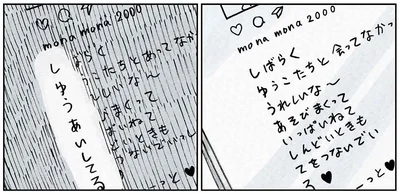 mona mona 2000
らく
うこたちとあってなか
しいな〜
びまくって
ぱいねて
どいときも
つないでいっ
ーっと♥
しゅうあいしてる
mona mona 2000
しばらく
ゆうこたちと会ってなかっ
うれしいな〜
あそびまくって
いっぱいねて
しんどいときも
てをつないでい
ろ♥
ーっと♥